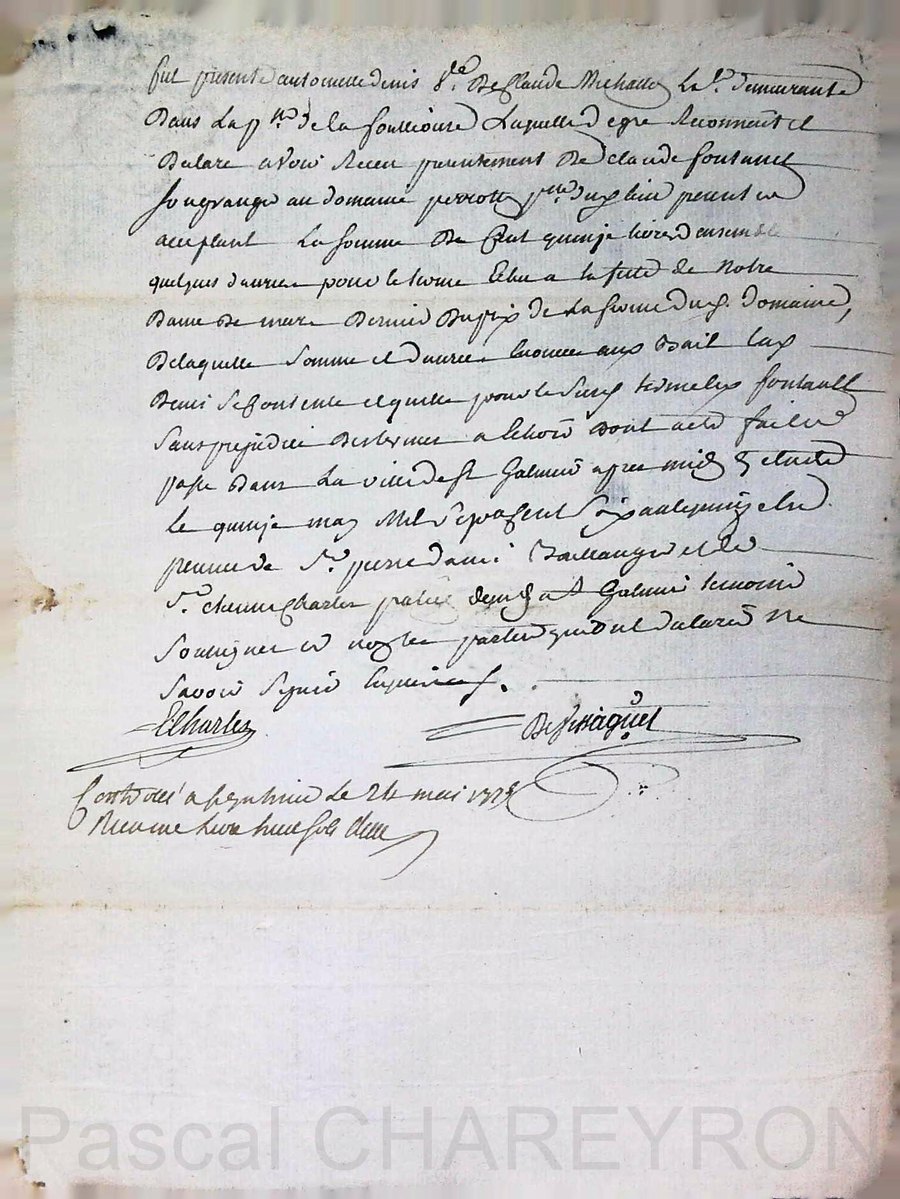 fut presente anthoinette denis v.e De Claude Michalle La.r demeurante
Dans La p.sse de la fouliouse Laquelle de gre Reconnoit et
Declare avoir Receu presentement De claude fontanet
son granger au domaine perrotte p.sse dud lieu present et
acceptant La somme De Cent quinze livres ensemble
quelques danrées pour le terme Echu a la feste de Notre
Dame De mars Dernier Du prix de La ferme dud. Domaine,
De laquelle somme et danrées Enoncée aux Bail lad
Denis se contente et quitte pour le susd terme led fontanet
Sans prejudice des termes a Echoir Dont acte fait et
passe Dans La ville de st Galmier apres midy Etude
Le quinze may Mil sept cent soixante quinze En
presence de S.r pierre danier Boullanger et de
S.r etienne Charles praticien demt a st Galmier temoins
Soussignes et non les parties qui ont declaré Ne
savoir signer Enquises.
E Charles
De Vissaguet
Controllé a st galmier Le 24 mai 1775
Recu une livre huit sols
Pascal CHAREYRON